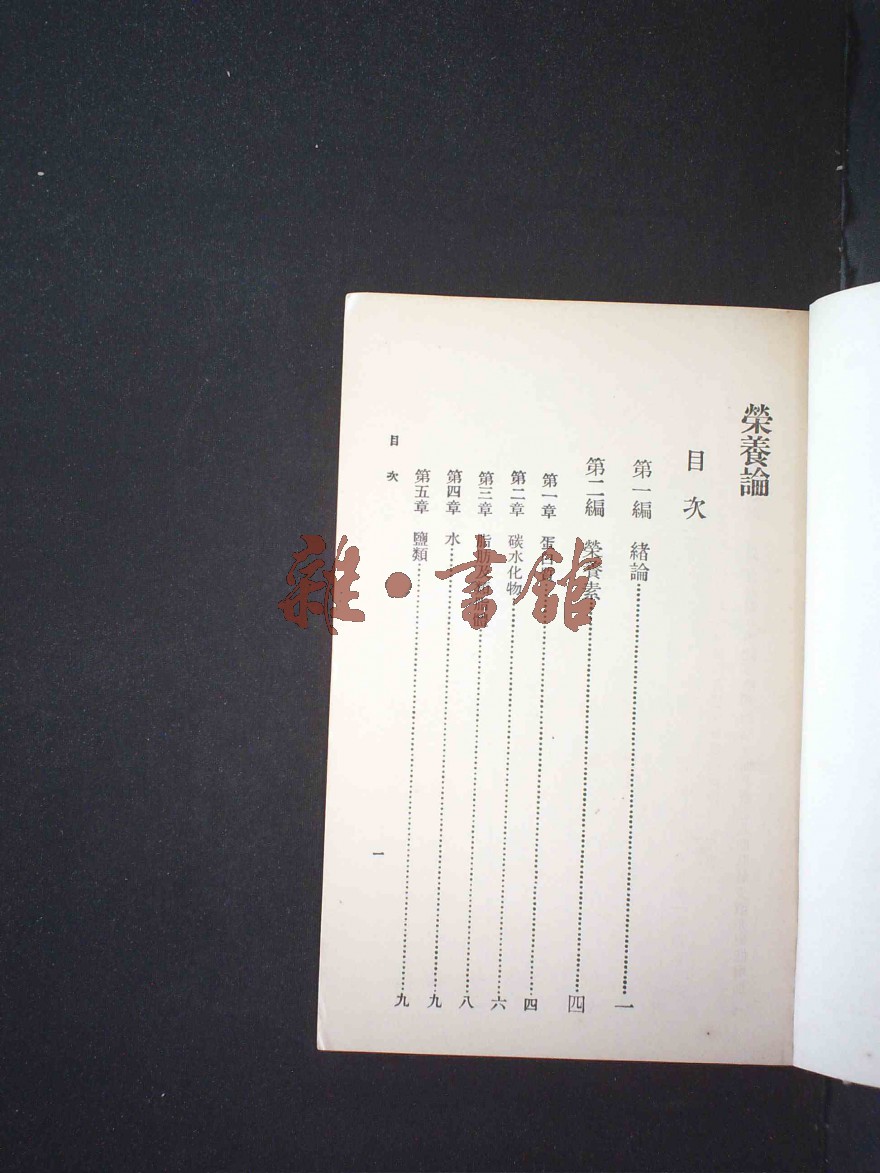 榮養論
目次
第一編 緒論 一
第二編 榮養素 四
第一章 蛋白質 四
第二章 碳水化物 六
第三章 脂肪及 八
第四章 水 九
第五章 鹽類 九
目次
一
雜·書館